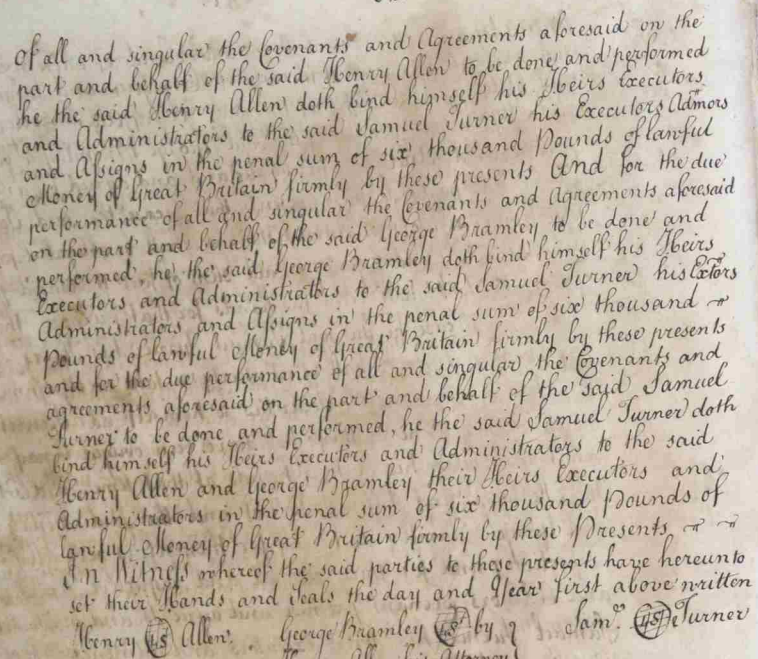 Of all and singular the Covenants and Agreements aforesaid on the
part and behalf of the said Henry Allen to be done and performed
he the said Henry Allen doth bind himself his Heirs Executors
and Administrators to the said Samuel Turner his Executors Admors
and Assigns in the penal sum of six thousand Pounds of lawful
Money of Great Britain firmly by these presents And for the due
performance of all and singular the Covenants and Agreements aforesaid
on the part and behalf of the said George Bramley to be done and
performed, he the said George Bramley doth bind himself his Heirs
Executors and Administrators to the said Samuel Turner his Extors
Administrators and Assigns in the penal sum of six thousand
Pounds of lawful Money of Great Britain firmly by these presents
and for the due performance of all and singular the Covenants and
agreements aforesaid on the part and behalf of the said Samuel
Turner to be done and performed, he the said Samuel Turner doth
bind himself his Heirs Executors and Administrators to the said
Henry Allen and George Bramley their Heirs Executors and
Administrators in the penal sum of six thousand Pounds of
lawful Money of Great Britain firmly by these Presents
In Witness whereof the said parties to these presents have hereunto
set their Hands and Seals the day and Year first above written
Henry LS Allen. George Bramley LS by Samˡ. LS Turner
Allen his Attorney